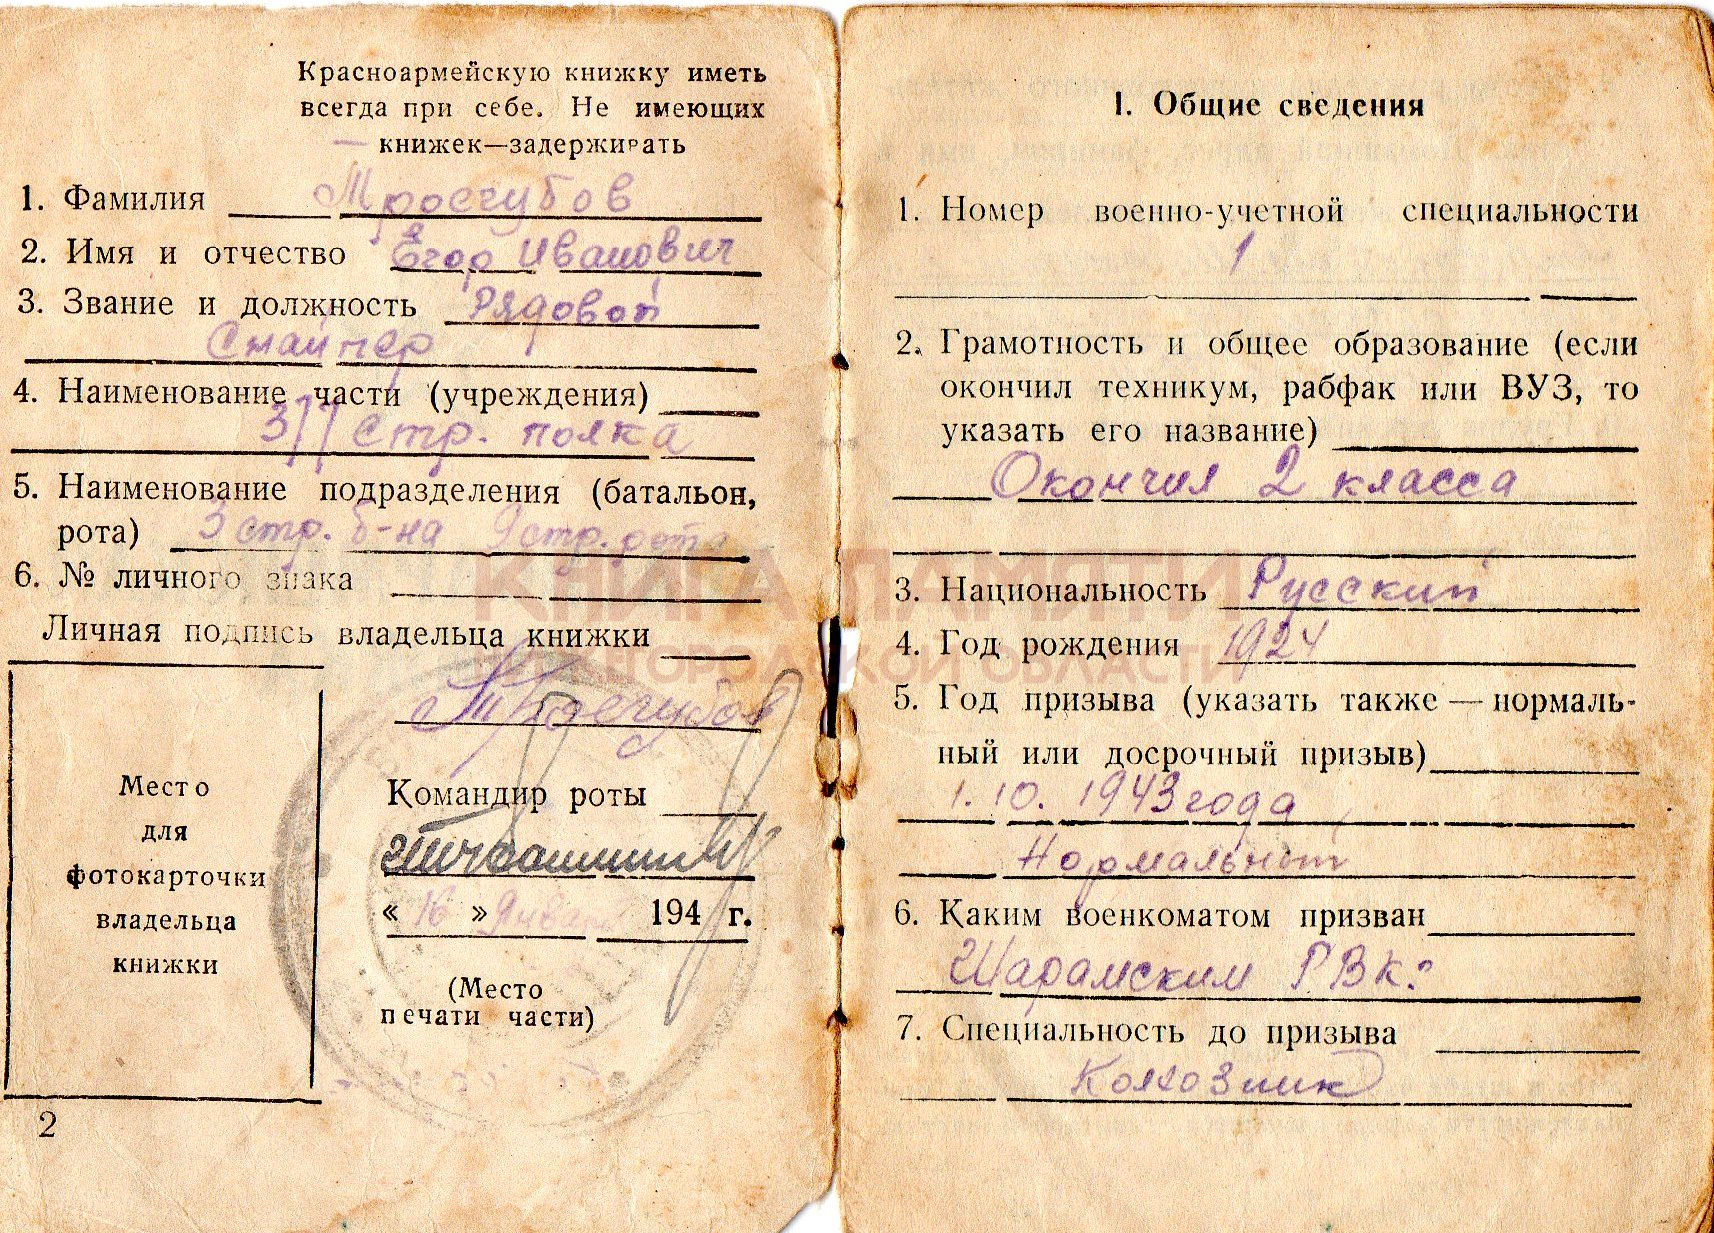 Красноармейскую книжку иметь
всегда при себе. Не имеющих
книжек—задерживать
1. Фамилия Троегубов
2. Имя и отчество Егор Иванович
3. Звание и должность Рядовой
Снайпер
4. Наименование части (учреждения)
377 стр. полка
5. Наименование подразделения (батальон,
рота) 3 стр. б-на 9 стр. рота
6. № личного знака
Личная подпись владельца книжки
Троегубов
Место
для
фотокарточки
владельца
книжки
Командир роты
« 16 » Января 194 г.
(Место
печати части)
2
I. Общие сведения
1. Номер военно-учетной специальности
1
2. Грамотность и общее образование (если
окончил техникум, рабфак или ВУЗ, то
указать его название)
Окончил 2 класса
3. Национальность Русский
4. Год рождения 1924
5. Год призыва (указать также — нормаль-
ный или досрочный призыв)
1.10.1943 года
Нормальный
6. Каким военкоматом призван
РВК.
7. Специальность до призыва
Колхозник
КНИГА ПАМЯТИ
ОБЛАСТИ